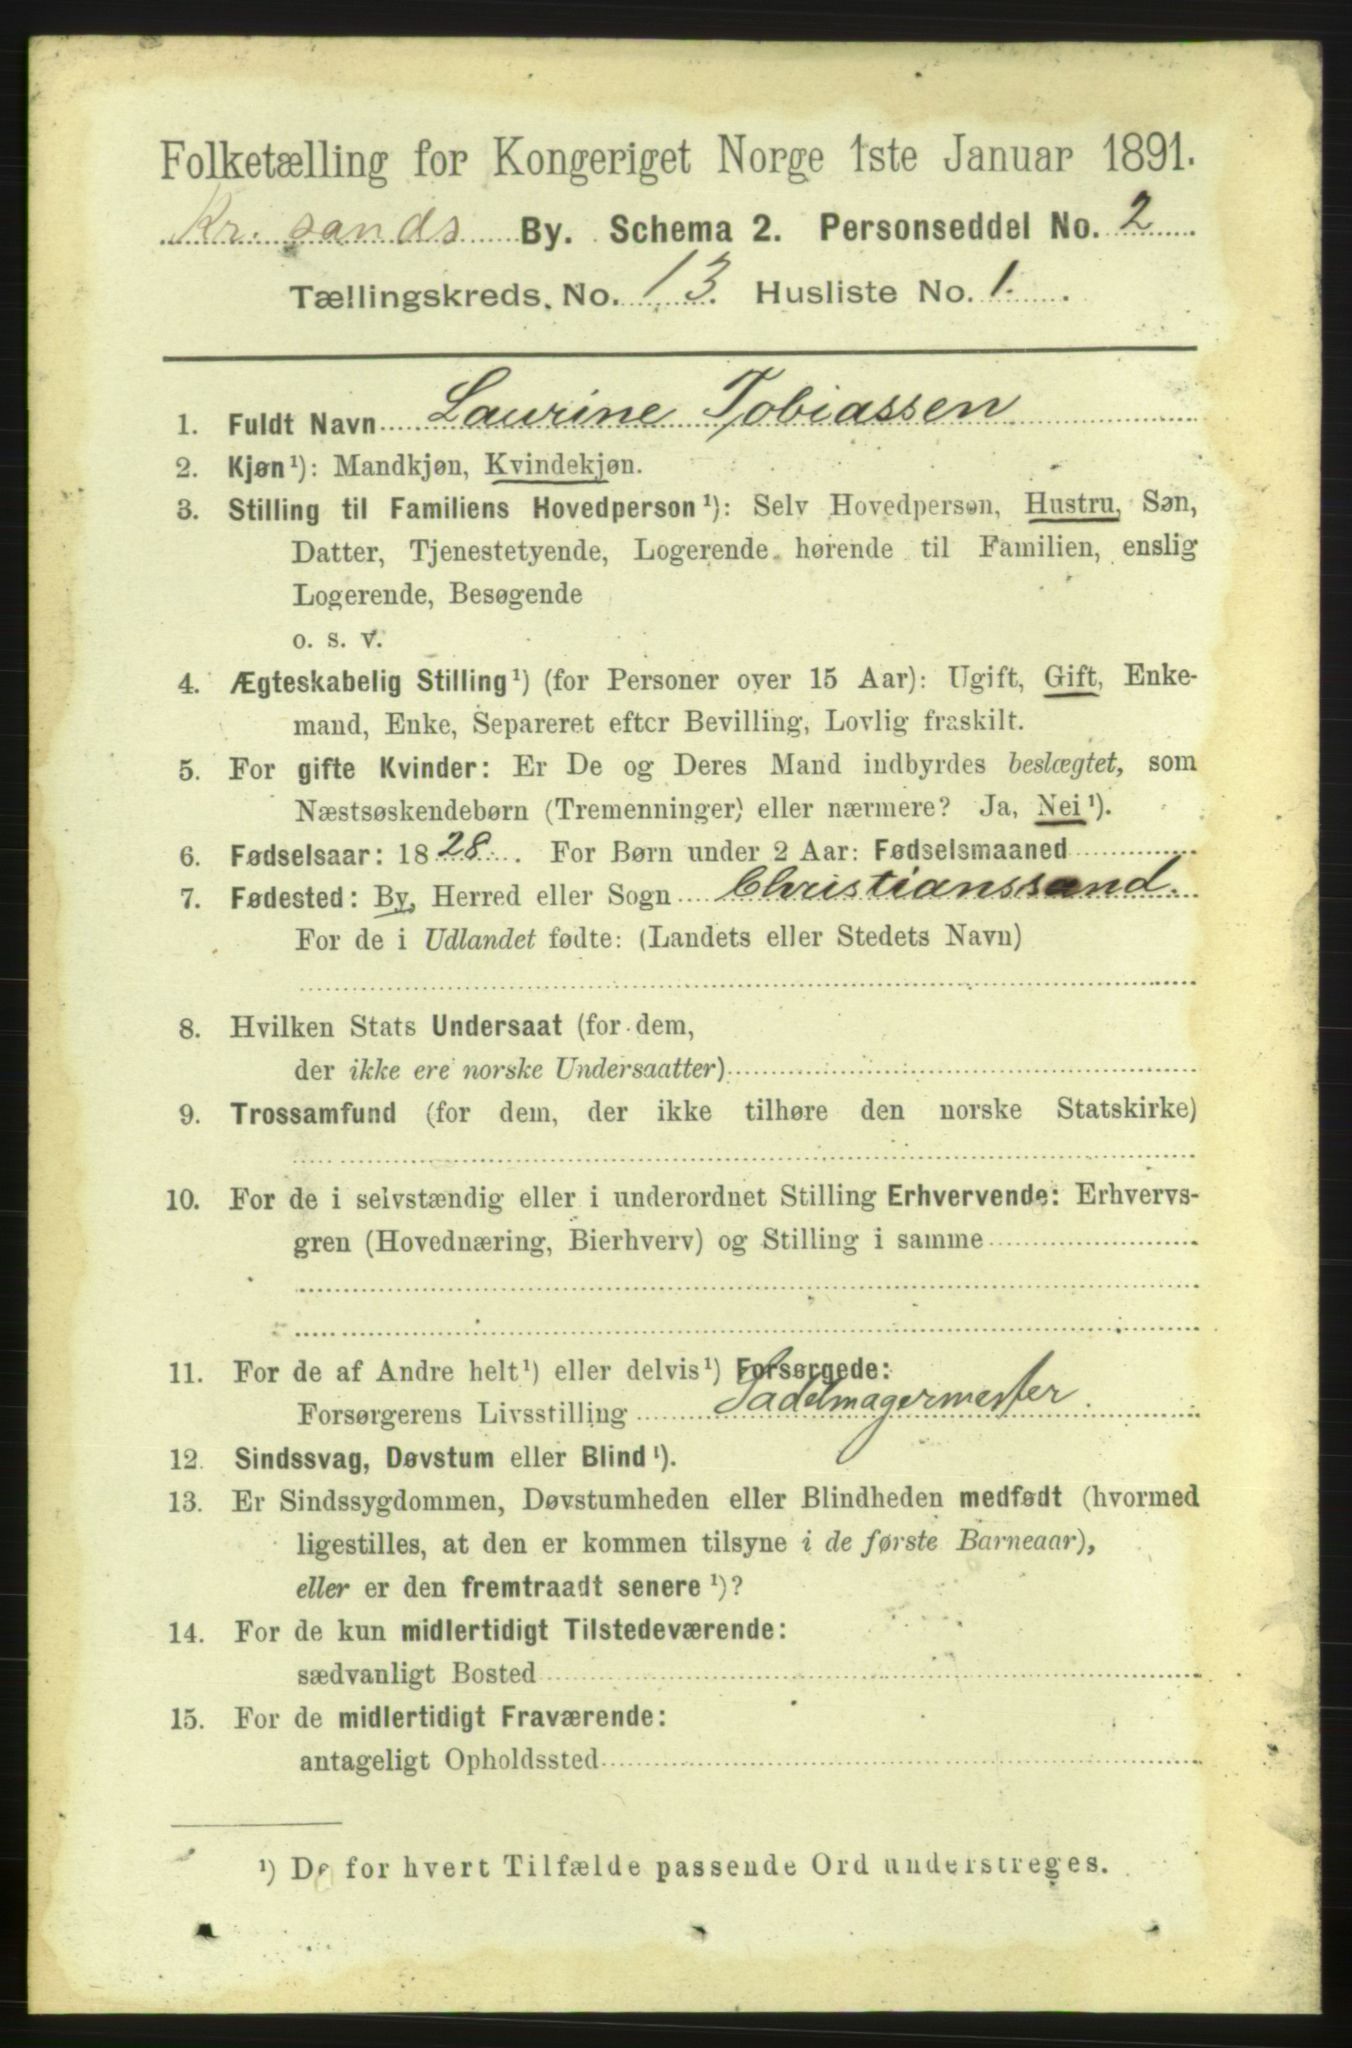 Folketælling for Kongeriget Norge 1ste Januar 1891.
Kr. sands By. Schema 2. Personseddel No. 2
Tællingskreds, No. 13. Husliste No. 1.
1. Fuldt Navn Laurine Tobiassen
2. Kjøn¹): Mandkjøn, Kvindekjøn.
3. Stilling til Familiens Hovedperson¹): Selv Hovedperson, Hustru, Søn,
Datter, Tjenestetyende, Logerende hørende til Familien, enslig
Logerende, Besøgende
o. s. v.
4. Ægteskabelig Stilling¹) (for Personer over 15 Aar): Ugift, Gift, Enke-
mand, Enke, Separeret efter Bevilling, Lovlig fraskilt.
5. For gifte Kvinder: Er De og Deres Mand indbyrdes beslægtet, som
Næstsøskendebørn (Tremenninger) eller nærmere? Ja, Nei¹).
6. Fødselsaar: 1828. For Børn under 2 Aar: Fødselsmaaned
7. Fødested: By, Herred eller Sogn Christianssand.
For de i Udlandet fødte: (Landets eller Stedets Navn)
8. Hvilken Stats Undersaat (for dem,
der ikke ere norske Undersaatter)
9. Trossamfund (for dem, der ikke tilhøre den norske Statskirke)
10. For de i selvstændig eller i underordnet Stilling Erhvervende: Erhvervs-
gren (Hovednæring, Bierhverv) og Stilling i samme
11. For de af Andre helt¹) eller delvis¹) Forsørgede:
Forsørgerens Livsstilling Sadelmagermester.
12. Sindssvag, Døvstum eller Blind¹).
13. Er Sindssygdommen, Døvstumheden eller Blindheden medfødt (hvormed
ligestilles, at den er kommen tilsyne i de første Barneaar),
eller er den fremtraadt senere¹)?
14. For de kun midlertidigt Tilstedeværende:
sædvanligt Bosted
15. For de midlertidigt Fraværende:
antageligt Opholdssted
¹) De for hvert Tilfælde passende Ord understreges.